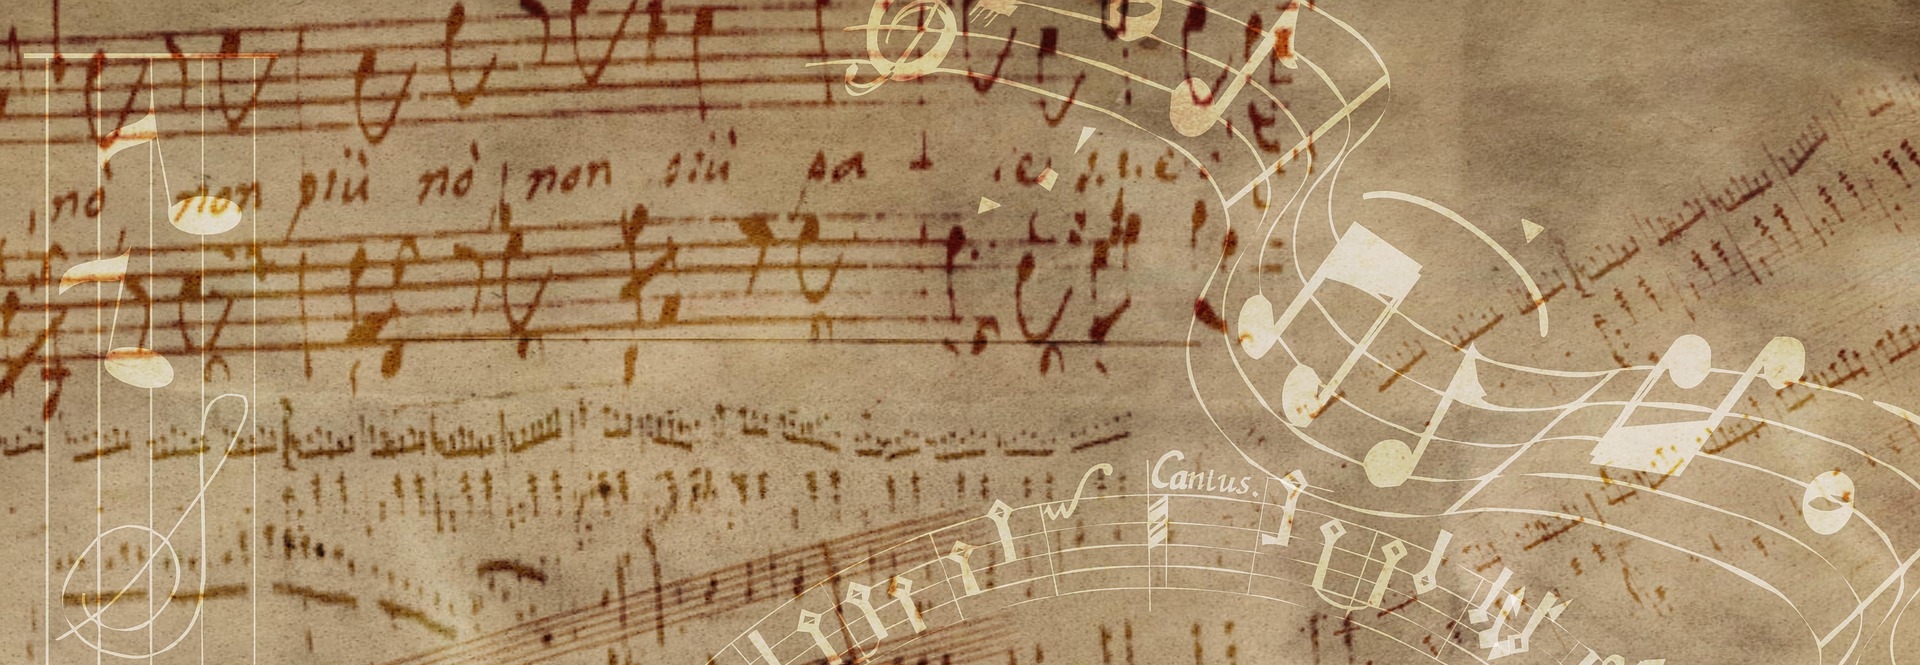 nò non più nò non più pa
Cantus.